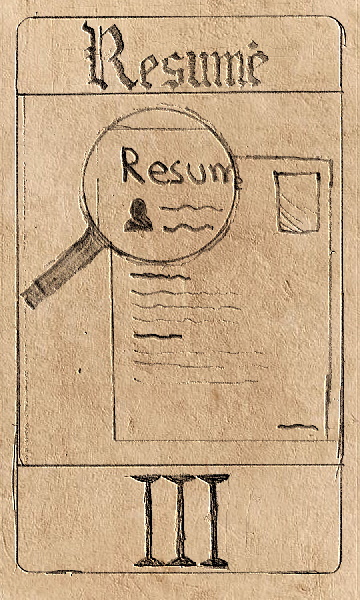 Resumé
Resum
III